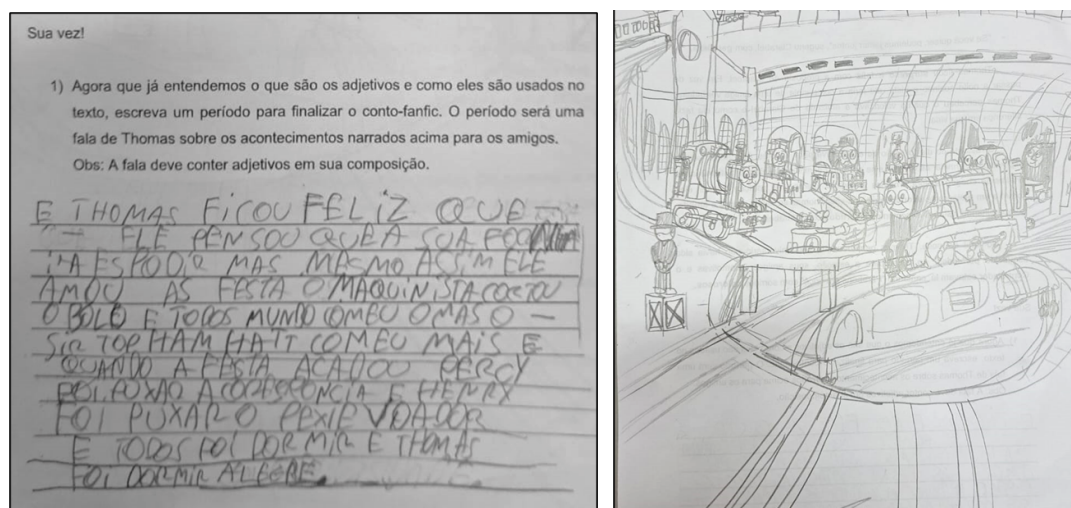 Sua vez!
1) Agora que já entendemos o que são os adjetivos e como eles são usados no
texto, escreva um período para finalizar o conto-fanfic. O período será uma
fala de Thomas sobre os acontecimentos narrados acima para os amigos.
Obs: A fala deve conter adjetivos em sua composição.
E THOMAS FICOU FELIZ QUE
ELE PENSOU QUE A SUA
MAS MASMO ASSIM ELE
AMOU AS FESTA O MAQUINISTA CORTOU
O BOLO E TODOS MUNDO COMEU O MAS O
SIR TOPHAM HATT COMEU MAIS E
QUANDO A FESTA ACABOU PERCY
FOI PUXAO A E HENRY
FOI PUXAR O PEXIE VOADOR
E TODOS FOI DORMIR E THOMAS
FOI DORMIR ALEGRE.